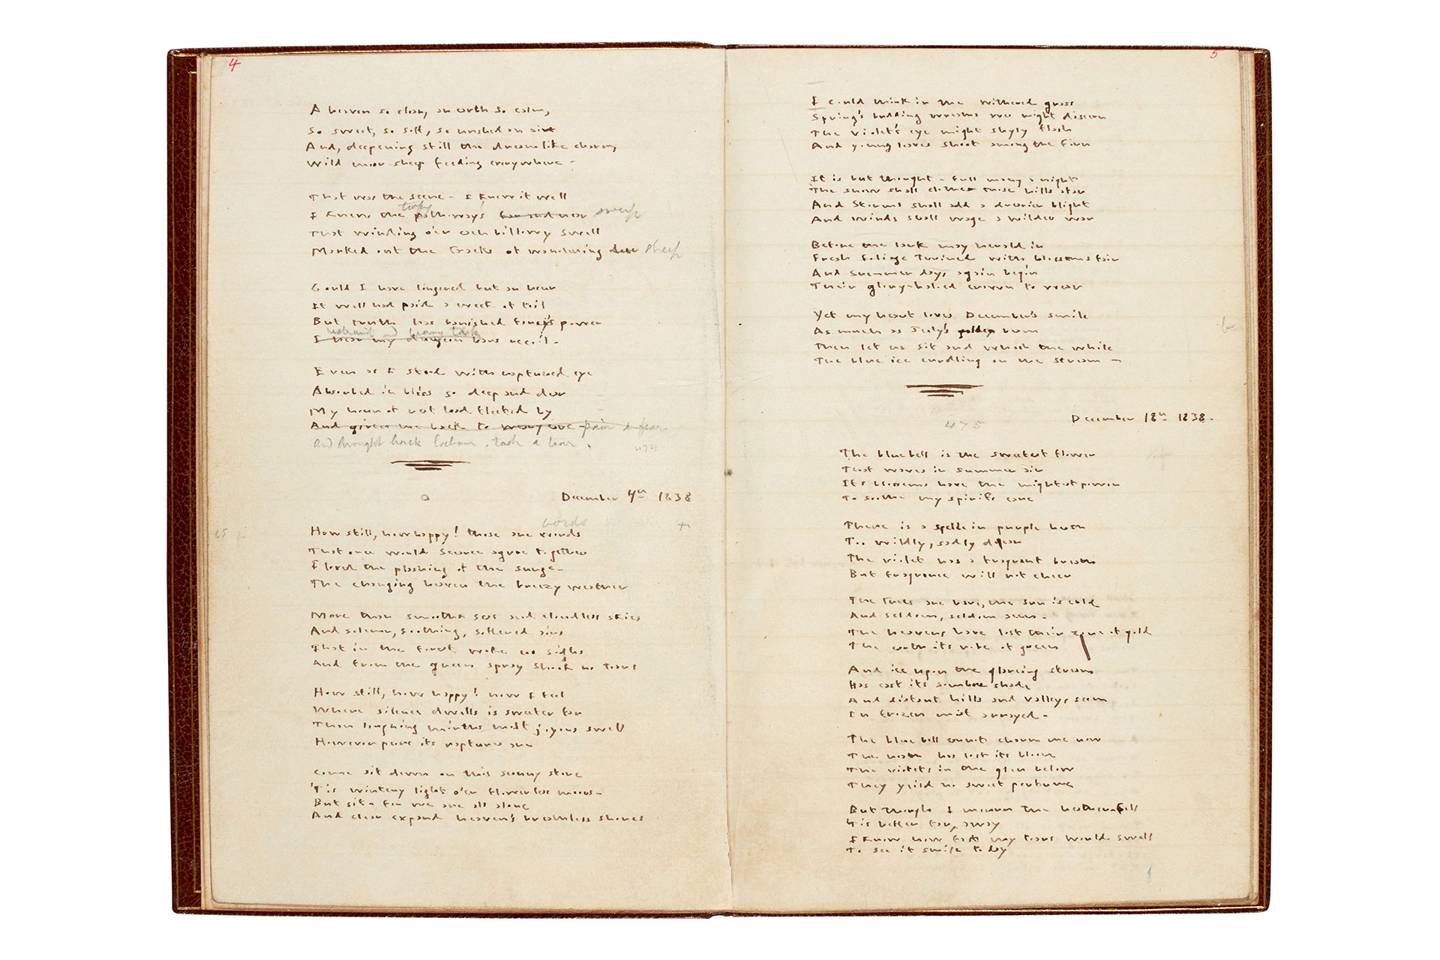 4
A heaven so clear, an earth so calm,
So sweet, so soft, so hushed an air
And, deepening still the dreamlike charm,
Wild moor-sheep feeding everywhere -
That was the scene - I knew it well
I knew the turfy path-ways sweep
That winding o'er each billowy swell
Marked out the tracks of wandering deer sheep
Could I have lingered but an hour
It well had paid a week of toil
But truth has banished fancy's power
restraint and heavy task
I hear my dungeon bars recoil -
Even as I stood with raptured eye
Absorbed in bliss so deep and dear
My hour of rest had fleeted by
And given me back to weary care
And brought back labour, bondage, care.
December 4th 1838
words
How still, how happy! those are words
That once would scarce agree together
I loved the plashing of the surge -
The changing heaven the breezy weather
More than smooth seas and cloudless skies
And solemn, soothing, softened airs
That in the forest woke no sighs
And from the green spray shook no tears
How still, how happy! now I feel
Where silence dwells is sweeter far
Than laughing mirth's most joyous swell
However pure its raptures are
Come sit down on this sunny stone
'Tis wintery light o'er flowerless moors -
But sit - for we are all alone
And clear expand heaven's breathless shores
5
I could think in the withered grass
Spring's budding wreaths we might discern
The violet's eye might shyly flash
And young leaves shoot among the fern
It is but thought - full many a night
The snow shall clothe those hills afar
And storms shall add a drearier blight
And winds shall wage a wilder war
Before the lark may herald in
Fresh foliage twined with blossoms fair
And summer days again begin
Their glory-haloed crown to wear
Yet my heart loves December's smile
As much as July's golden beam
Then let us sit and watch the while
The blue ice curdling on the stream -
December 18th 1838.
The blue bell is the sweetest flower
That waves in summer air
Its blossoms have the mightiest power
To soothe my spirit's care
There is a spell in purple heath
Too wildly, sadly dear
The violet has a fragrant breath
But fragrance will not cheer
The trees are bare, the sun is cold
And seldom, seldom seen -
The heavens have lost their zone of gold
The earth its robe of green
And ice upon the glancing stream
Has cast its sombre shade
And distant hills and valleys seem
In frozen mist arrayed -
The blue bell cannot charm me now
The heath has lost its bloom
The violets in the glen below
They yield no sweet perfume
But though I mourn the heather-bell
'Tis better far, away
I know how fast my tears would swell
To see it smile to day